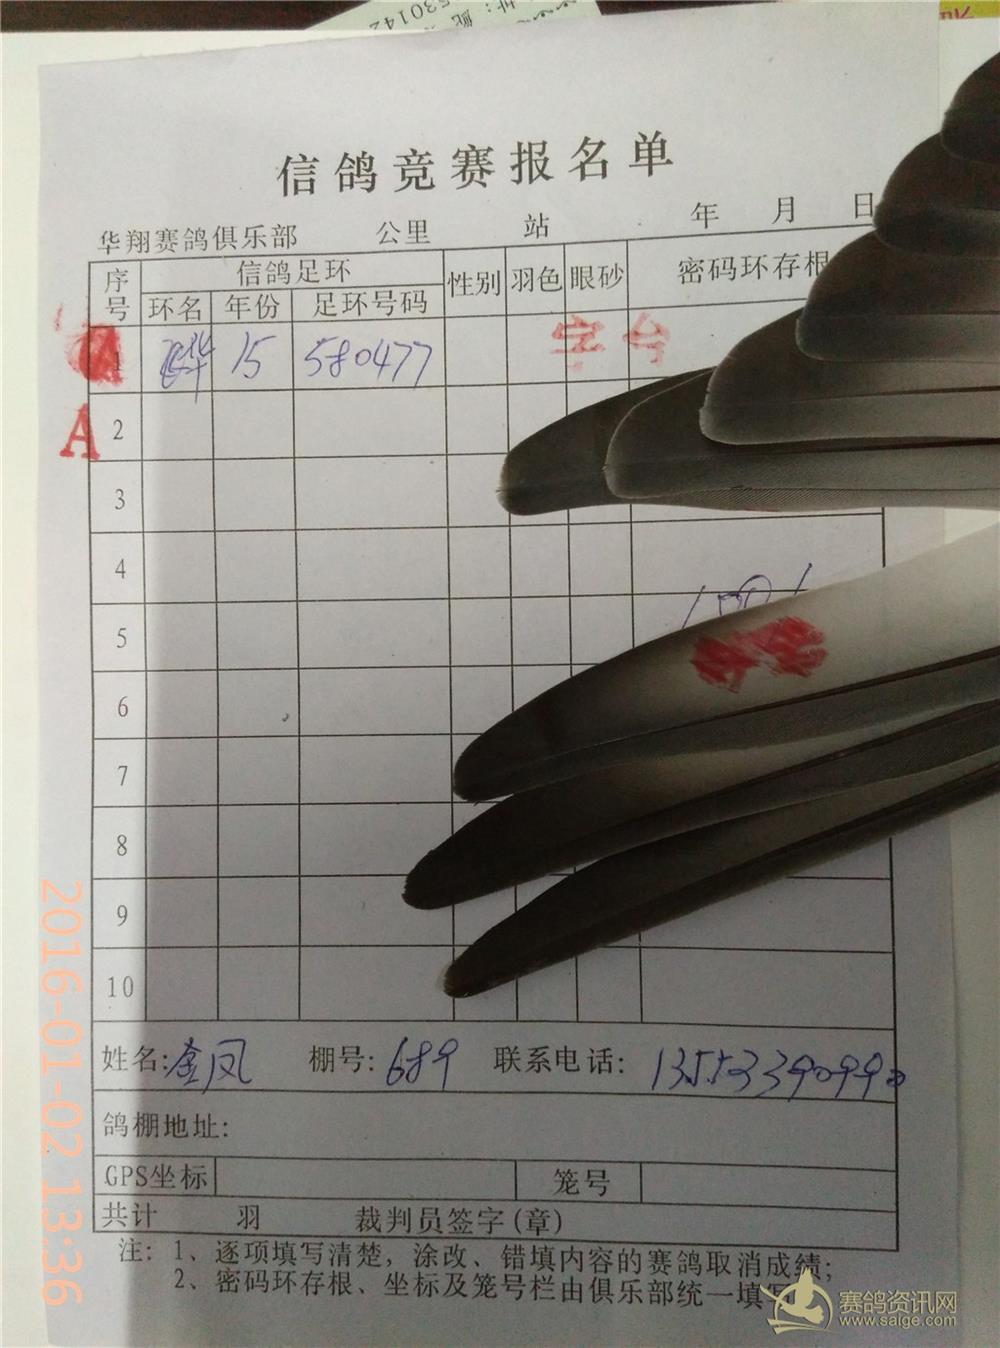 530142
信鸽竞赛报名单
华翔赛鸽俱乐部 公里 站 年 月 日
序号 信鸽足环 性别 羽色 眼砂 密码环存根
环名 年份 足环号码
1 15 580477
A
2
3
4
5
6
7
8
9
10
姓名:金凤 棚号:689 联系电话:
鸽棚地址:
GPS坐标 笼号
共计 羽 裁判员签字(章)
注: 1、逐项填写清楚, 涂改、错填内容的赛鸽取消成绩;
2、密码环存根、坐标及笼号栏由俱乐部统一填写
2016-01-02 13:36
赛鸽资讯网
www.saige.com